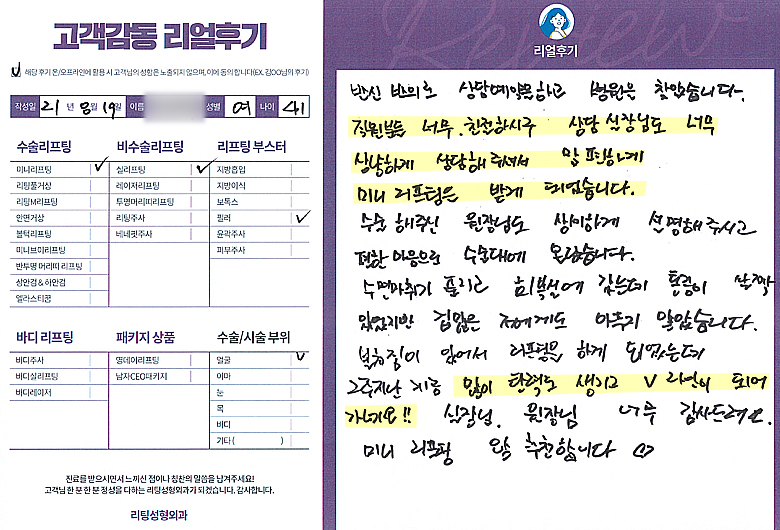 고객감동 리얼후기
해당 후기 온/오프라인에 활용 시 고객님의 성함은 노출되지 않으며, 이에 동의합니다(EX. 김OO님의 후기)
작성일 21년 8월 19일 이름 성별 여 나이 41
수술리프팅
미니리프팅
리팅풀거상
리팅M리프팅
안면거상
볼턱리프팅
미니브이리프팅
반투명 머리띠 리프팅
상안검 & 하안검
엘라스티꿈
비수술리프팅
실리프팅
레이저리프팅
투명머리띠리프팅
리팅주사
베네핏주사
리프팅 부스터
지방흡입
지방이식
보톡스
필러
윤곽주사
피부주사
바디 리프팅
바디주사
바디실리프팅
바디레이저
패키지 상품
영데이리프팅
남자CEO패키지
수술/시술 부위
얼굴
이마
눈
목
바디
기타 ( )
진료를 받으시면서 느끼신 점이나 칭찬의 말씀을 남겨주세요!
고객님 한 분 한 분 정성을 다하는 리팅성형외과가 되겠습니다. 감사합니다.
리팅성형외과
리얼후기
반신 반의로 상담예약을하고 병원은 찾았습니다.
직원분들 너무 친절하시구 상담 실장님도 너무
상냥하게 상담해주셔서 맘 편하게
미니 리프팅은 받게 되었습니다.
수술 해주신 원장님도 상세하게 설명해주시고
편한 마음으로 수술대에 올랐습니다.
수면마취가 풀리고 회복실에 갔는데 통증이 살짝
있었지만 겁많은 저에게도 아프지 않았습니다.
볼처짐이 있어서 리프팅을 하게 되었는데
2주지난 지금 많이 탄력도 생기고 V라인이 되어
가네요!! 실장님. 원장님 너무 감사드려요.
미니 리프팅 왕 추천합니다 ♡